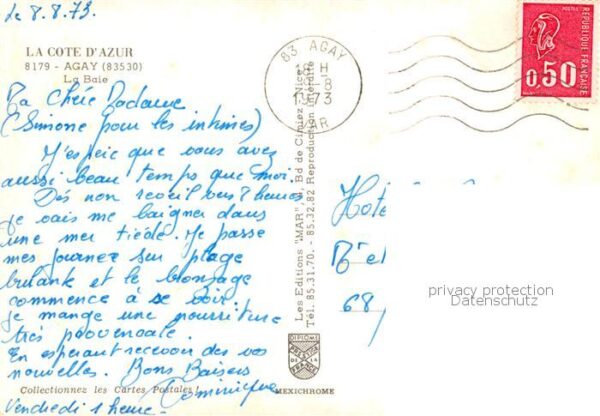 le 8.8.73.
LA COTE D'AZUR
8179 - AGAY (83530)
La Baie
Ma Chère Madame
(Simone pour les intimes)
J'espère que vous avez
aussi beau temps que moi.
Dés mon reveil vers 7 heures
je vais me baigner dans
une mer tiède. Je passe
mes journées sur plage
brulante et le bronzage
commence à se voir.
je mange une nourriture
très provencale.
En esperant recevoir des vos
nouvelles. Bons Baisers
Dominique
Collectionnez les Cartes Postales !
Vendredi 1 heure.
Les Editions "MAR", Bd de Cimiez - Nice
Tél. 85.31.70. - 85.32.82 Reproduction Interdite
DIPLOME
PRESTIGE
DE LA
FRANCE
MEXICHROME
83 AGAY
H
8
1973
VAR
POSTES
REPUBLIQUE FRANÇAISE
0,50
68
privacy protection
Datenschutz